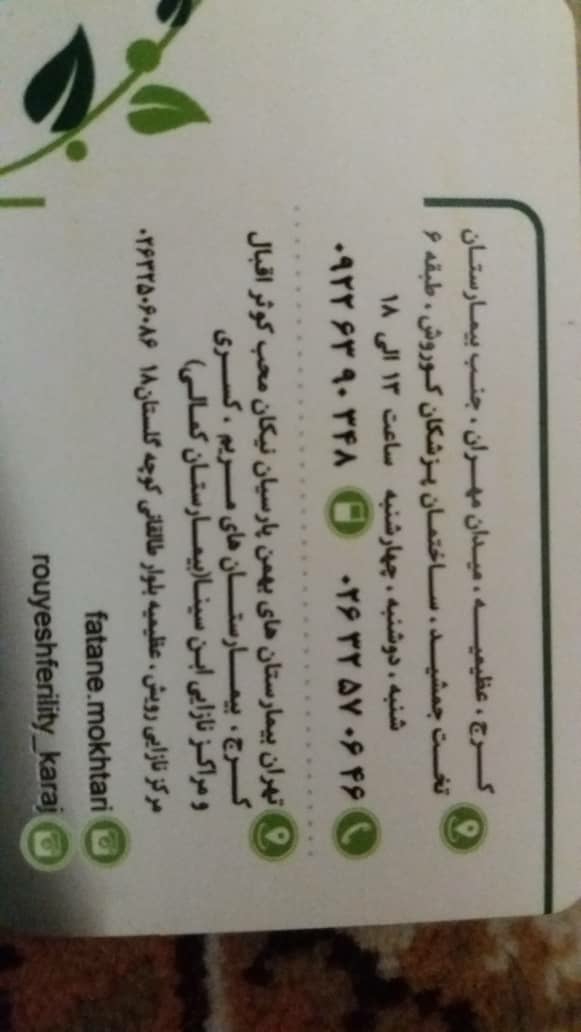 کرج ، عظیمیه ، میدان مهران ، جنب بیمارستان
تخت جمشید ، ساختمان پزشکان کوروش ، طبقه ۶
شنبه ، دوشنبه ، چهارشنبه ساعت ۱۳ الی ۱۸
۰۲۶ ۳۲ ۵۷ ۰۶ ۴۶ ۰۹۲۲ ۶۳ ۹۰ ۳۴۸
تهران بیمارستان های بهمن پارسیان نیکان محب کوثر اقبال
کرج ، بیمارستان های مریم ، کسری
و مراکز نازایی ابن سینا(بیمارستان کمالی)
مرکز نازایی رویش ، عظیمیه بلوار طالقانی کوچه گلستان۱۸ ۰۲۶۳۲۵۰۶۰۸۶
fatane.mokhtari
rouyeshferility_karaj